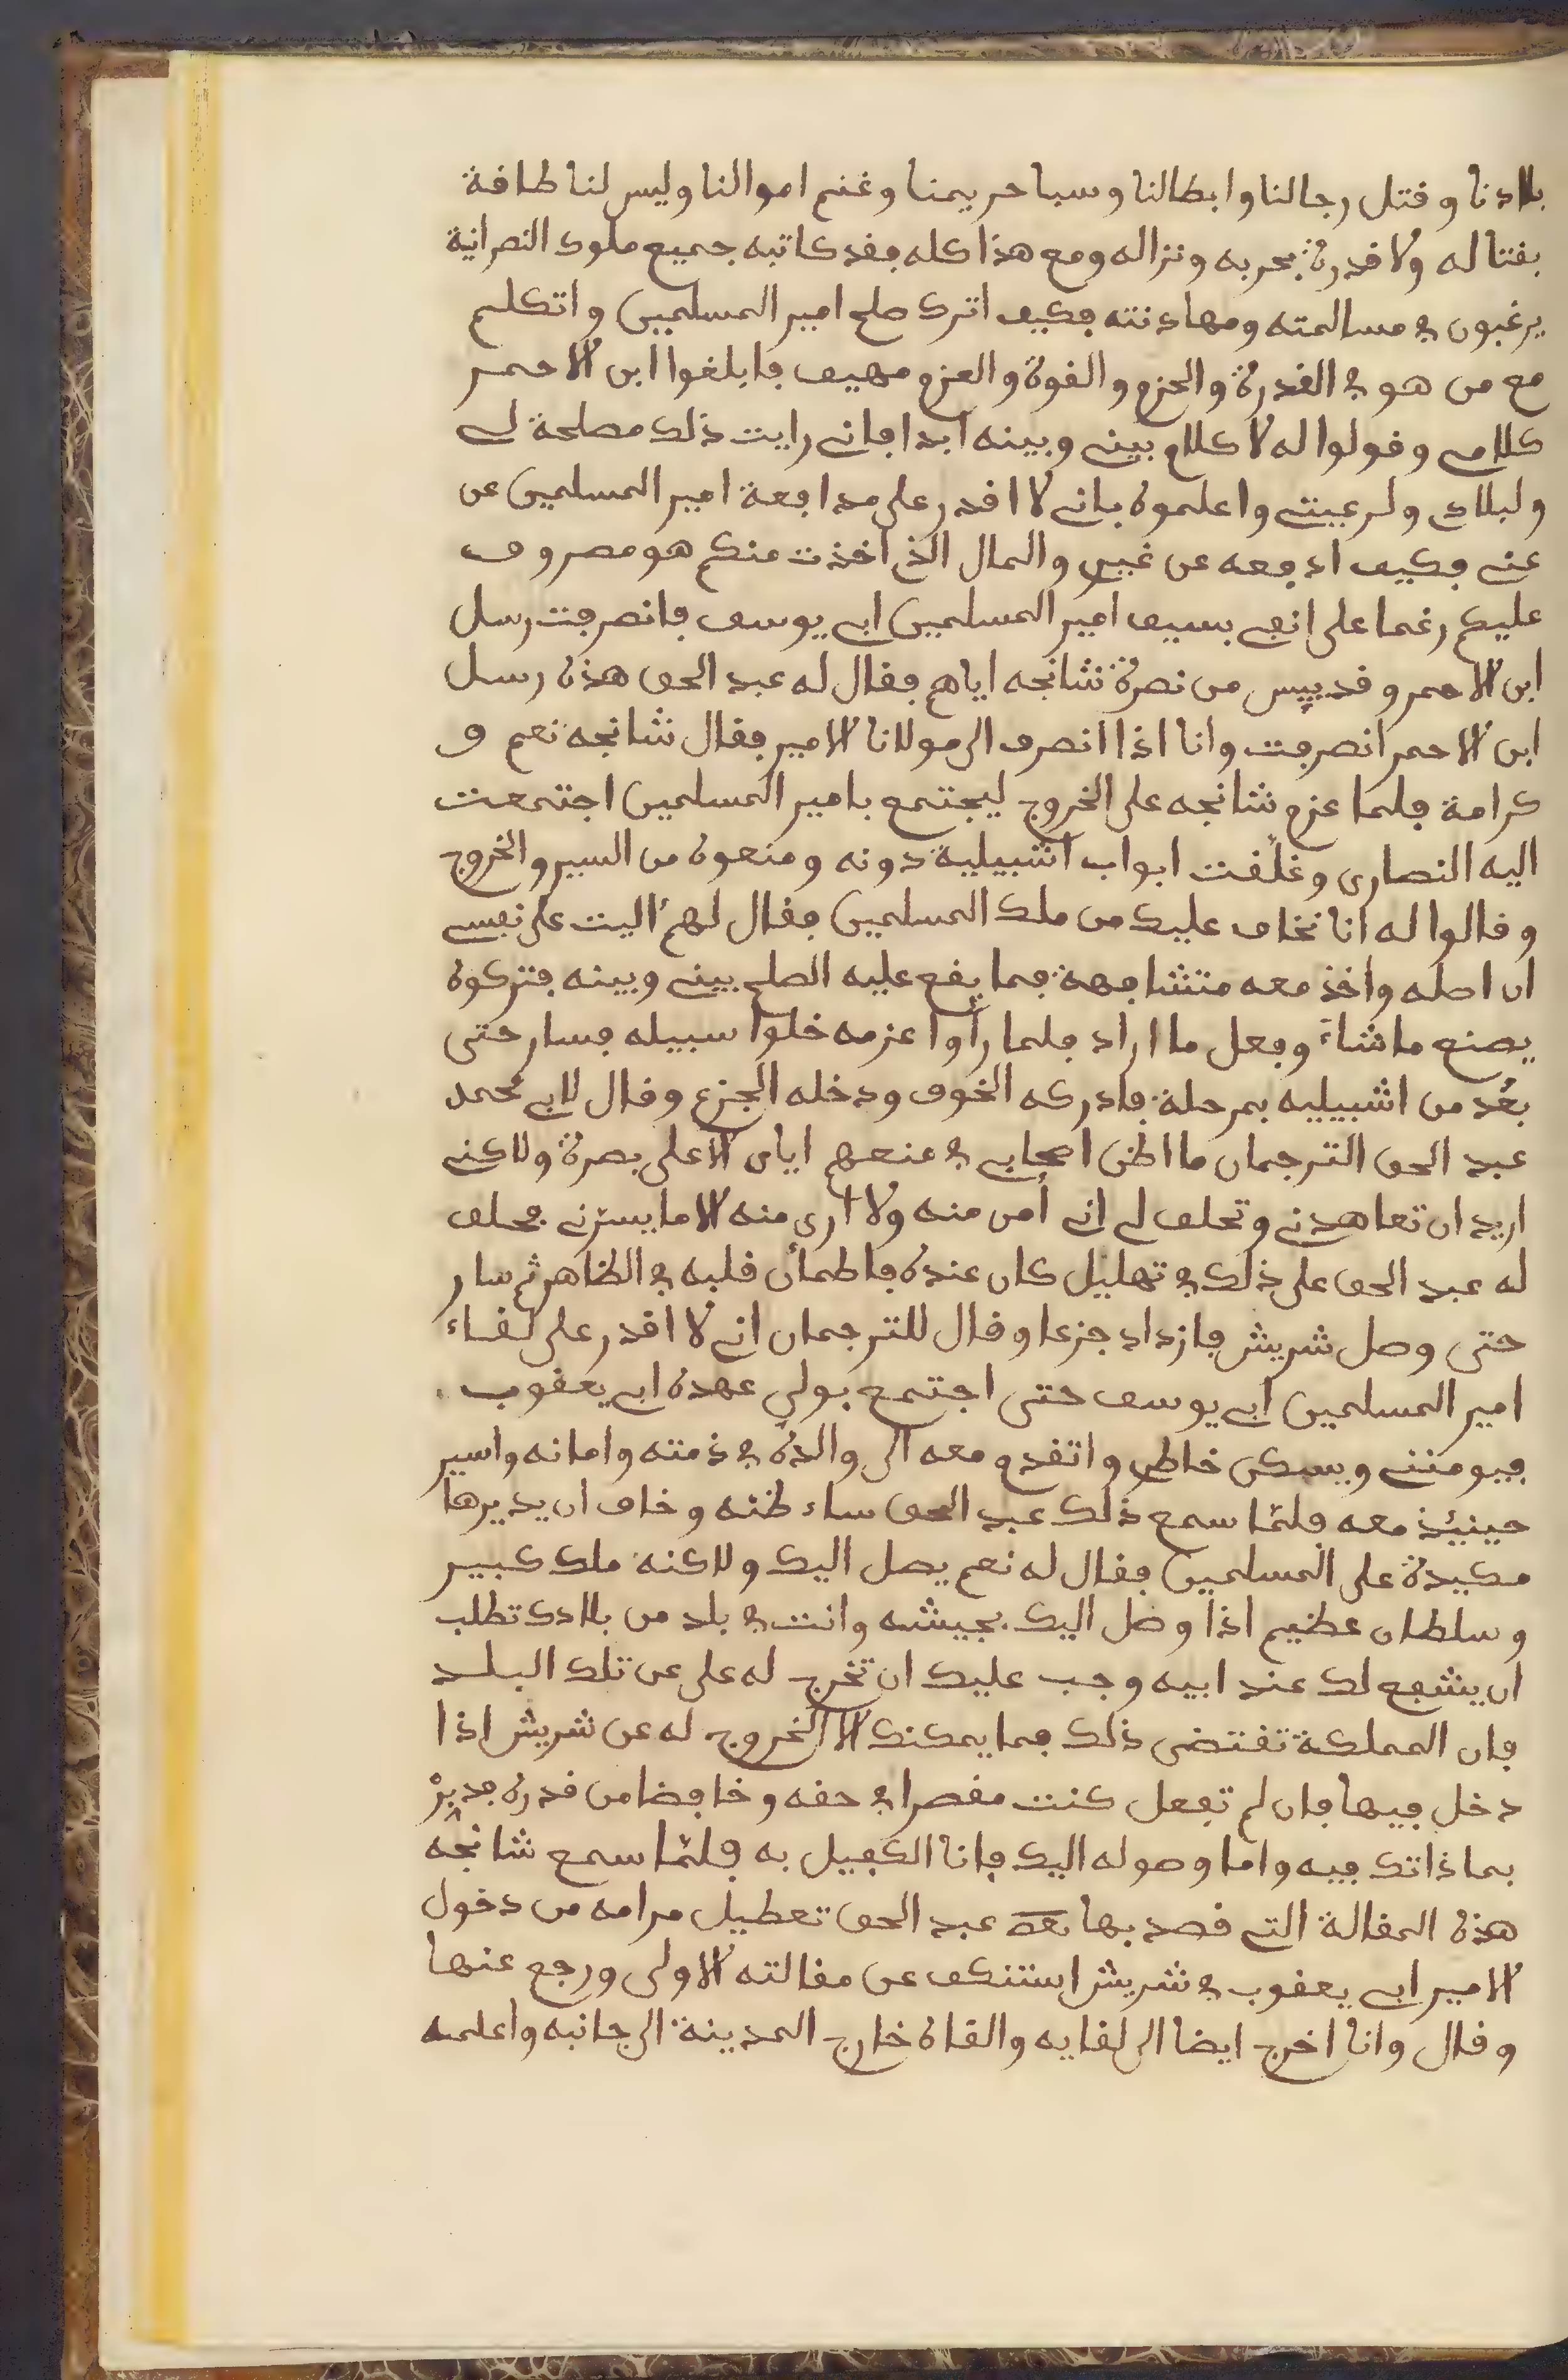 بلادنا وقتل رجالنا وابطالنا وسبا حريمنا وغنم اموالنا وليس لنا طاقة
بقتاله ولا قدرة بحربه ونزاله ومع هذا كله فقد كاتبه جميع ملوك النصرانية
يرغبون في مسالمته ومهادنته فكيف اترك صلح امير المسلمين واتكلم
مع من هو في القدرة والحزم والقوة والعزم مهيف فابلغوا ابن الاحمر
كلامي وقولوا له لا كلام بيني وبينه ابدا فاني رايت ذلك مصلحة لي
ولبلادي ولرعيتي واعلموه باني لا اقدر على مدافعة امير المسلمين عن
عني فكيف ادفعه عن غيري والمال الذي اخذت منكم هو مصروف
عليكم رغما على انفي بسيف امير المسلمين ابي يوسف فانصرفت رسل
ابن الاحمر وقد ييس من نصرة شانجه اياهم فقال له عبد الحق هذه رسل
ابن الاحمر انصرفت وانا اذا انصرف الى مولانا الامير فقال شانجه نعم و
كرامة فلما عزم شانجه على الخروج ليجتمع بامير المسلمين اجتمعت
اليه النصارى وغلقت ابواب اشبيلية دونه ومنعوه من السير والخروج
وقالوا له انا نخاف عليك من ملك المسلمين فقال لهم اليت على نفسي
ان اصله واخذ معه متشافهة فما يقع عليه الصلح بيني وبينه فتركوه
يصنع ما شاء وفعل ما اراد فلما رأوا عزمه خلوا سبيله فسار حتى
بعُد من اشبيليه بمرحلة فادركه الخوف ودخله الجزع وقال لابي محمد
عبد الحق الترجمان ما اظن اصحابي في منعهم اياي الا على بصرة ولاكني
اريد ان تعاهدني وتحلف لي اني أمن منه ولا ارى منه الا ما يسرني فحلف
له عبد الحق على ذلك في تهليل كان عنده فاطمأن قلبه في الظاهر ثم سار
حتى وصل شريش فازداد جزعا وقال للترجمان اني لا اقدر على لقاء
امير المسلمين ابي يوسف حتى اجتمع بولي عهده ابي يعقوب
فيومنني ويسكن خاطري واتقدم معه الى والده في ذمته وامانه واسير
حينيذ معه فلمّا سمع ذلك عبد الحق ساء ظنه وخاف ان يديرها
مكيدة على المسلمين فقال له نعم يصل اليك ولاكنه ملك كبير
وسلطان عظيم اذا وصل اليك بجيشه وانت في بلد من بلادك تطلب
ان يشفع لك عند ابيه وجب عليك ان تخرج له على عن تلك البلد
فان المملكة تقتضي ذلك فما يمكنك الا الخروج له عن شريش اذا
دخل فيها فان لم تفعل كنت مقصرا في حقه وخافضا من قدره فدبرْ
بما ذاتك فيه واما وصوله اليك فانا الكفيل به فلمّا سمع شانجه
هذه المقالة التي قصد بها عبد الحق تعطيل مرامه من دخول
الامير ابي يعقوب في شريش استنكف عن مقالته الاولى ورجع عنها
وقال وانا اخرج ايضا الى لقايه والقاه خارج المدينة الى جانبه واعلمه